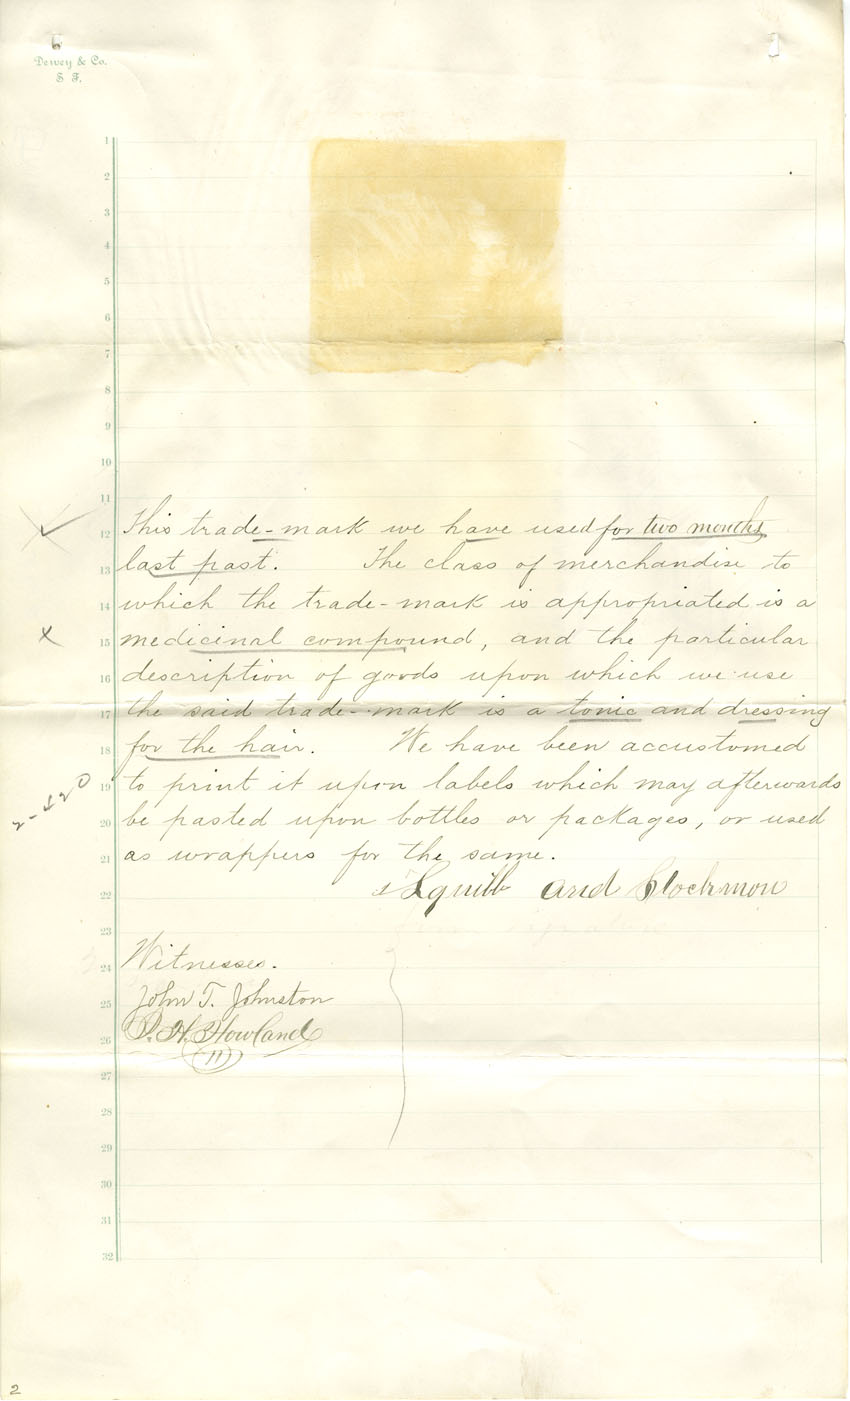 6
Dewey & Co.
S. F.
1
2
3
4
5
6
7
8
9
10
11
12 This trade-mark we have used for two months
13 last past. The class of merchandise to
14 which the trade-mark is appropriated is a
15 medicinal compound, and the particular
16 description of goods upon which we use
17 the said trade-mark is a tonic and dressing
18 for the hair. We have been accustomed
19 to print it upon labels which may afterwards
20 be pasted upon bottles or packages, or used
21 as wrappers for the same.
22 Squibb and Stockmon
23
24 Witnesses.
25 John T. Johnston
26 H. Howland
27
28
29
30
31
32
2-420
2